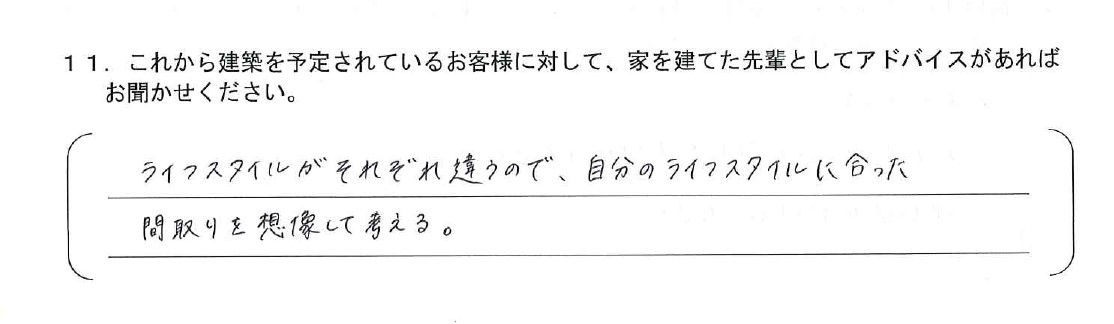 11．これから建築を予定されているお客様に対して、家を建てた先輩としてアドバイスがあれば
お聞かせください。
ライフスタイルがそれぞれ違うので、自分のライフスタイルに合った
間取りを想像して考える。